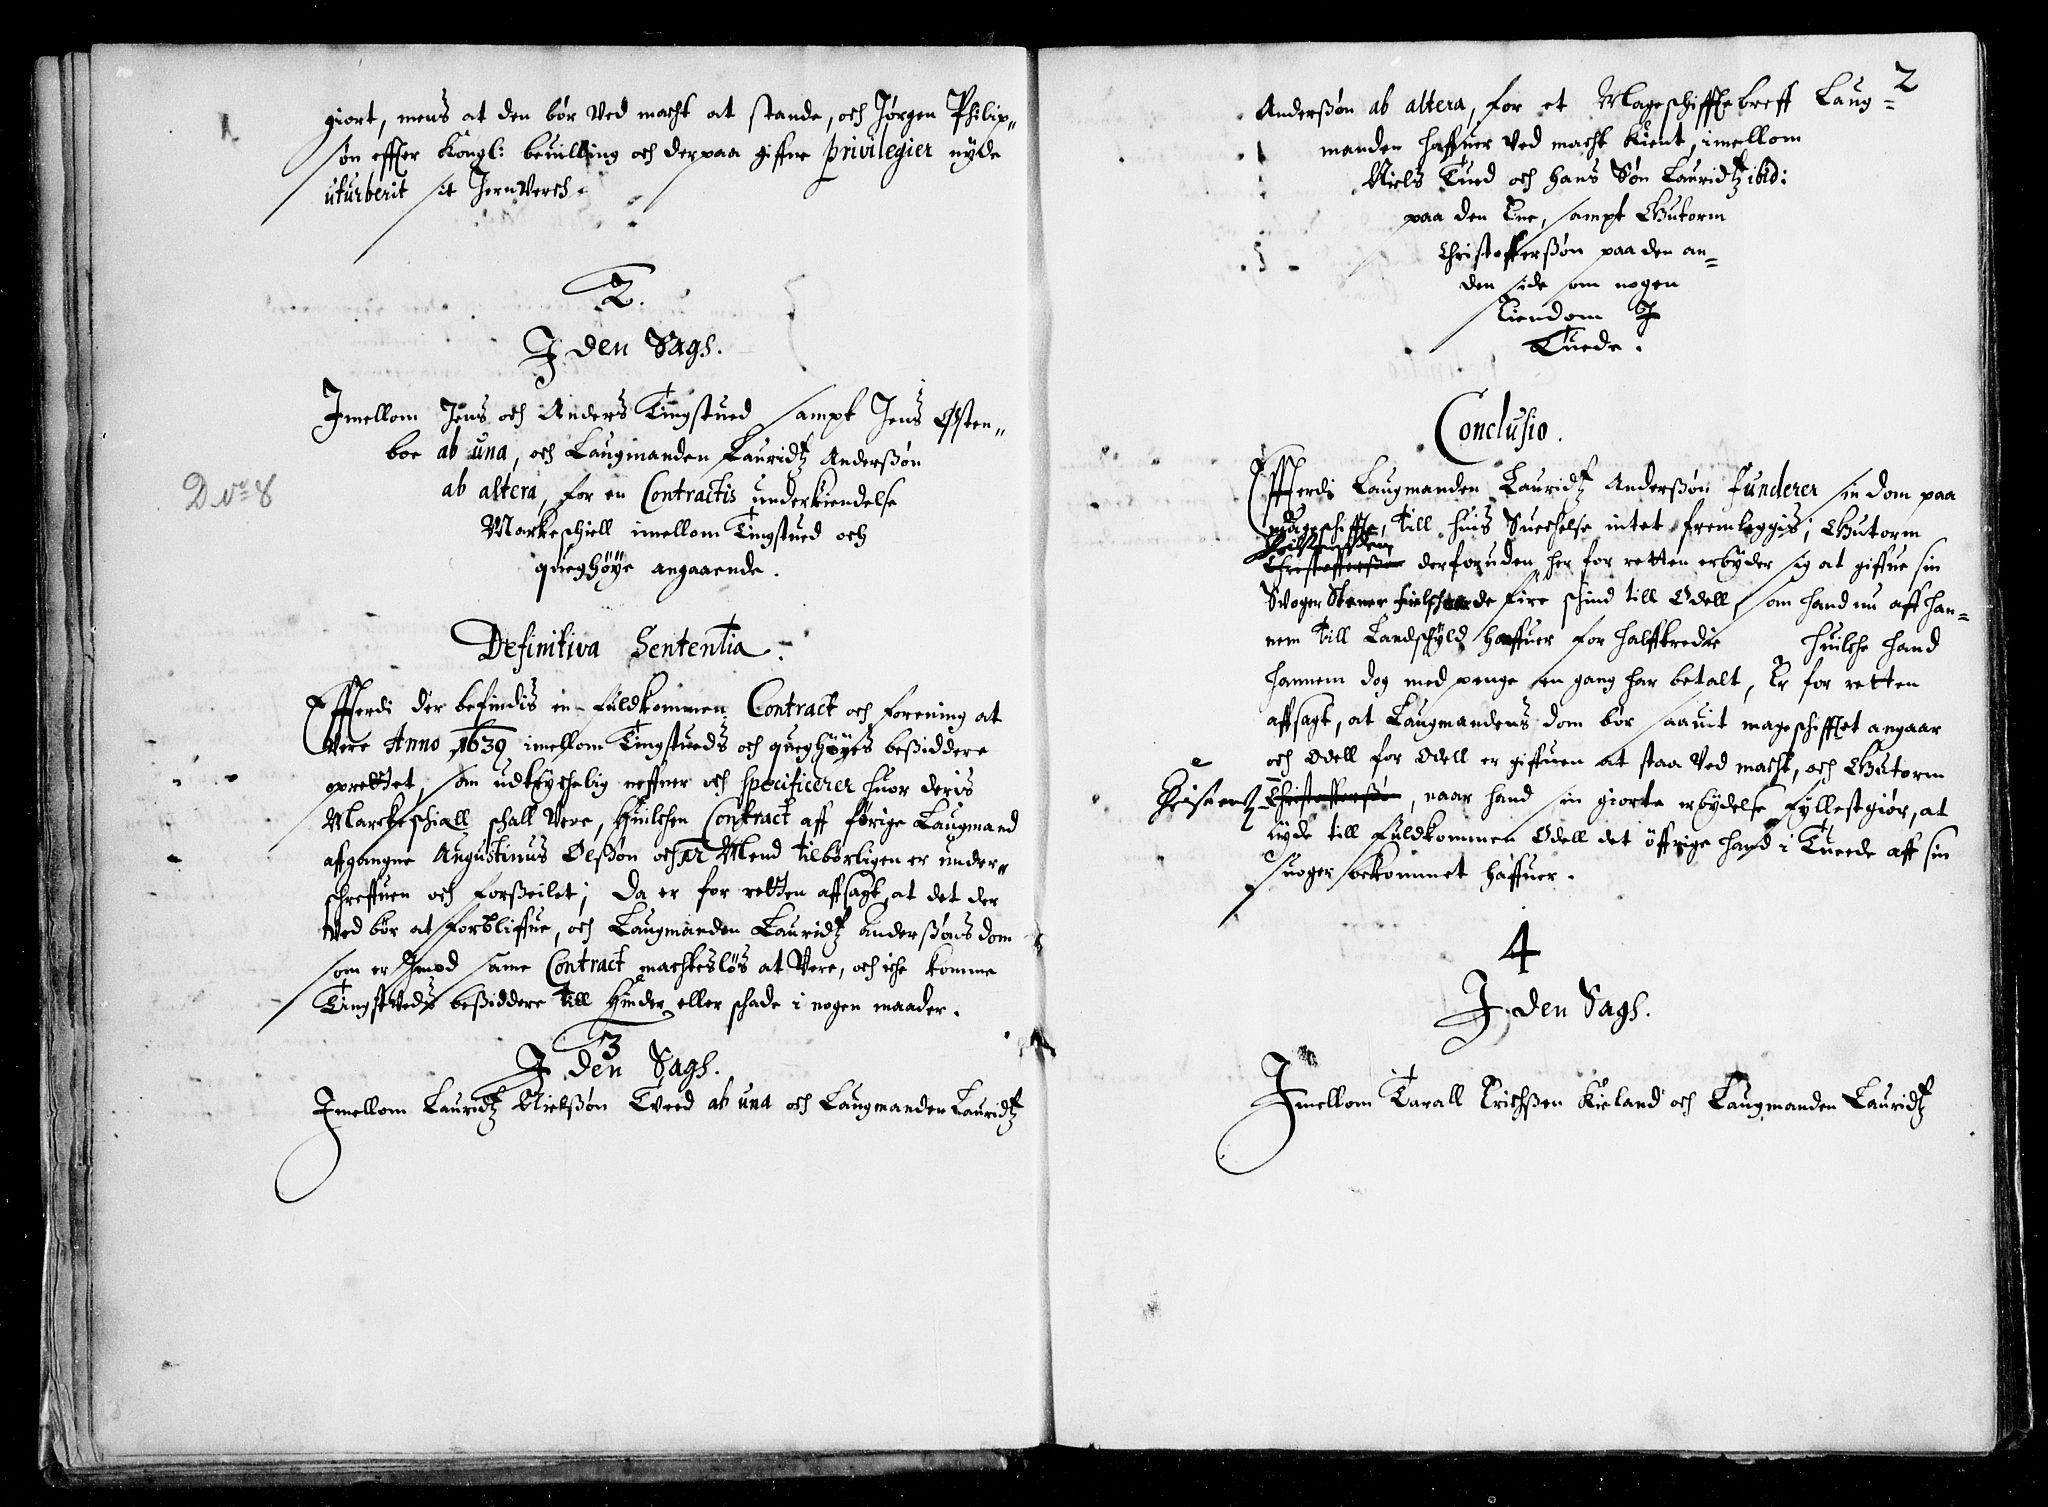 giort, mens at den bør ved macht at stande, och Jørgen Philip„
søn effter Kongl: beuilling och derpaa giffne privilegier nyde
uturberit sit Jernverch.
2.
J den Sags.
Jmellom Jens och Anders Tingstued sampt Jens Østen„
boe ab una, och Laugmanden Lauridtz Anderßøn
ab altera, for en Contractis underkiendelse
D No 8
Markeschiell imellom Tingstued och
queghöye angaaende.
Definitiva Sententia.
Effterdi der befindis en fuldkommen Contract och forening at
vere Anno 1639 imellom Tingstueds och queghöyes beßiddere
oprettet, som udtrychelig neffner och specificerer huor deris
Markeschiæll schall vere, Huilchen Contract aff förige Laugmand
afgangne Augustinus Olßøn och 12 Mend tilbörligen er under„
schreffuen och forßeilet; Da er for retten affsagt, at det der
ved bör at forbliffue, och Laugmanden Lauridtz Anderßøns dom
som er Jmod same Contract machteslös at vere, och iche komme
Tingstveds beßiddere till Hinder eller schade i nogen maader.
3
J den Sags.
Jmellom Lauridtz Nielßøn Tveed ab una och Laugmanden Lauridtz
2
Anderßøn ab altera, for et Mageschiffte breff Laug=
manden haffuer ved macht kient, imellom
Niels Tued och hans Søn Lauridtz ibid:
paa den Ene, sampt Gutorm
Christofferßøn paa den an=
den side om nogen
Eiendom J
Tuede.
Conclusio.
Effterdi Laugmanden Lauridtz Anderßøn funderer sin dom paa
mageschiffte, till huis Suechelse intet fremleggis; Gutorm
Christofferßøn derforuden her for retten erbyder sig at giffue sin
Svoger Stener fire schind till Odell, som hand nu aff han=
nem till Landschyld haffuer for halfftredie huilche hand
hannem dog med penge en gang har betalt, Er for retten
affsagt, at Laugmandens dom bör saauit mageschifftet angaar
och Odell for Odell er giffuen at staa ved macht, och Gutorm
Christofferßøn, naar hand sin giorte erbydelse fyllestgiör, at
nyde till fuldkommen Odell det öffrige hand i Tuede aff sin
suoger bekommet haffuer.
4
J den Sags.
Jmellom Tarall Erichßen Kieland och Laugmanden Lauridtz